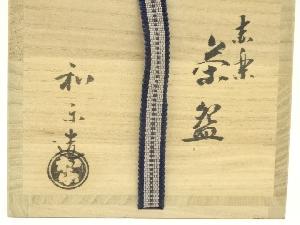 赤楽
茶盌
和楽造